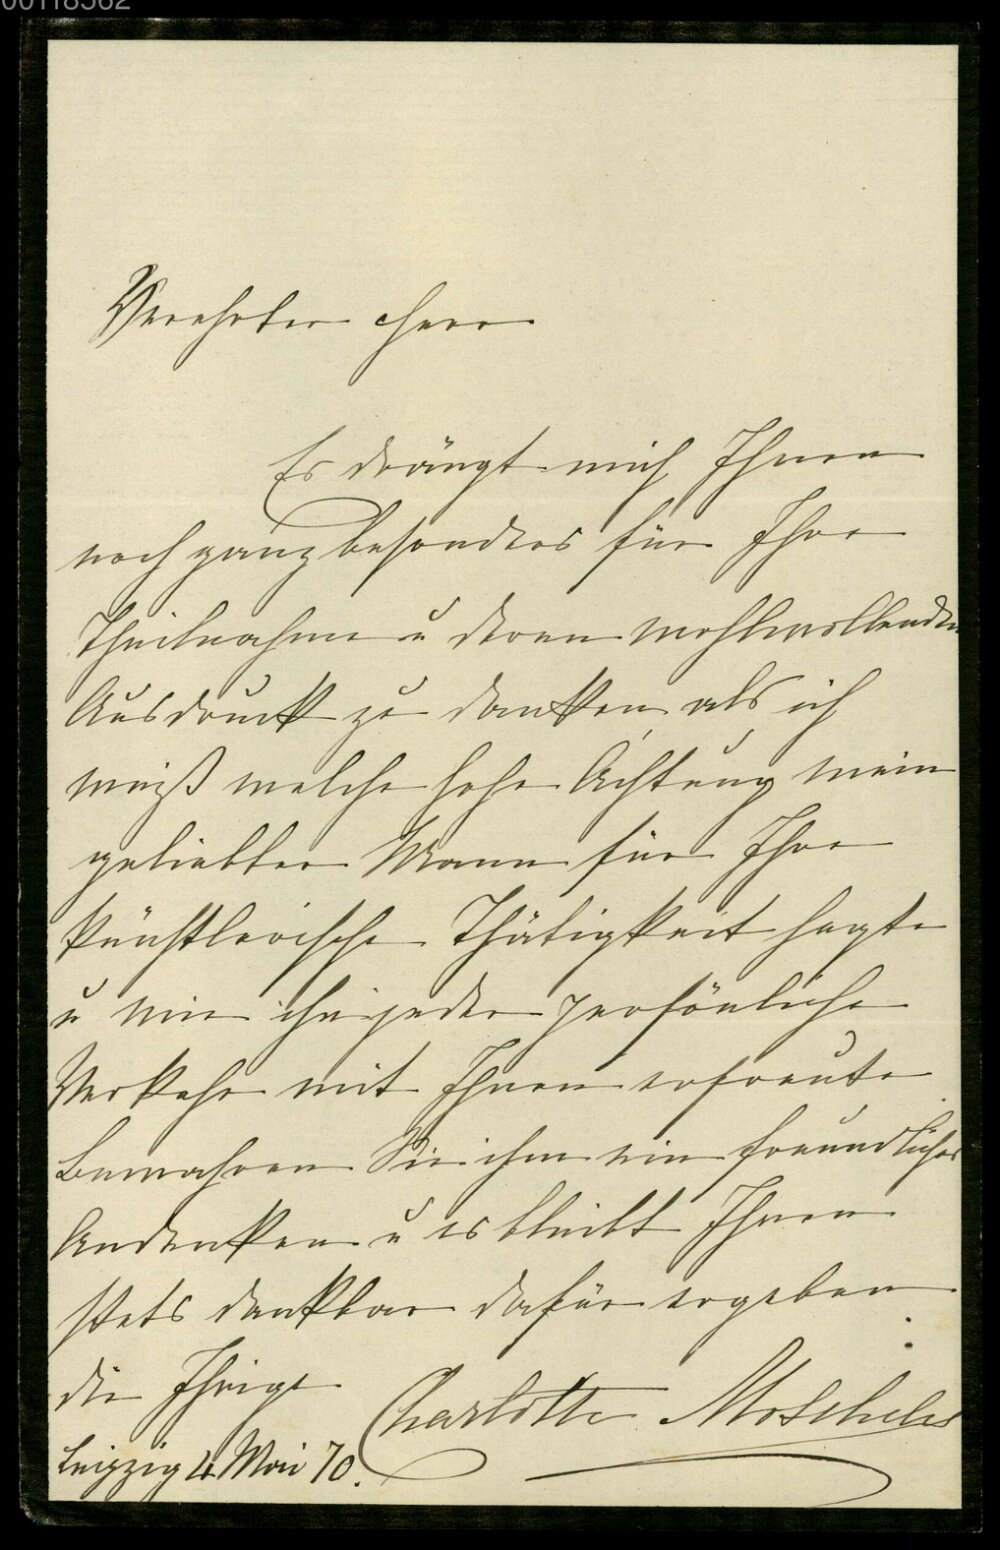 00118562
Verehrter Herr
Es drängt mich Ihnen
noch ganz besonders für Ihre
Theilnahme u deren wohlwollenden
Ausdruck zu danken, als ich
weiß welche hohe Achtung mein
geliebter Mann für Ihre
künstlerische Thätigkeit hegte
u wie ihn jeder persönliche
Verkehr mit Ihnen erfreute
Bewahren Sie ihm ein freundliches
Andenken u es bleibt Ihnen
stets dankbar dafür ergeben
die Ihrige Charlotte Moscheles
Leipzig 4 Mai 70.